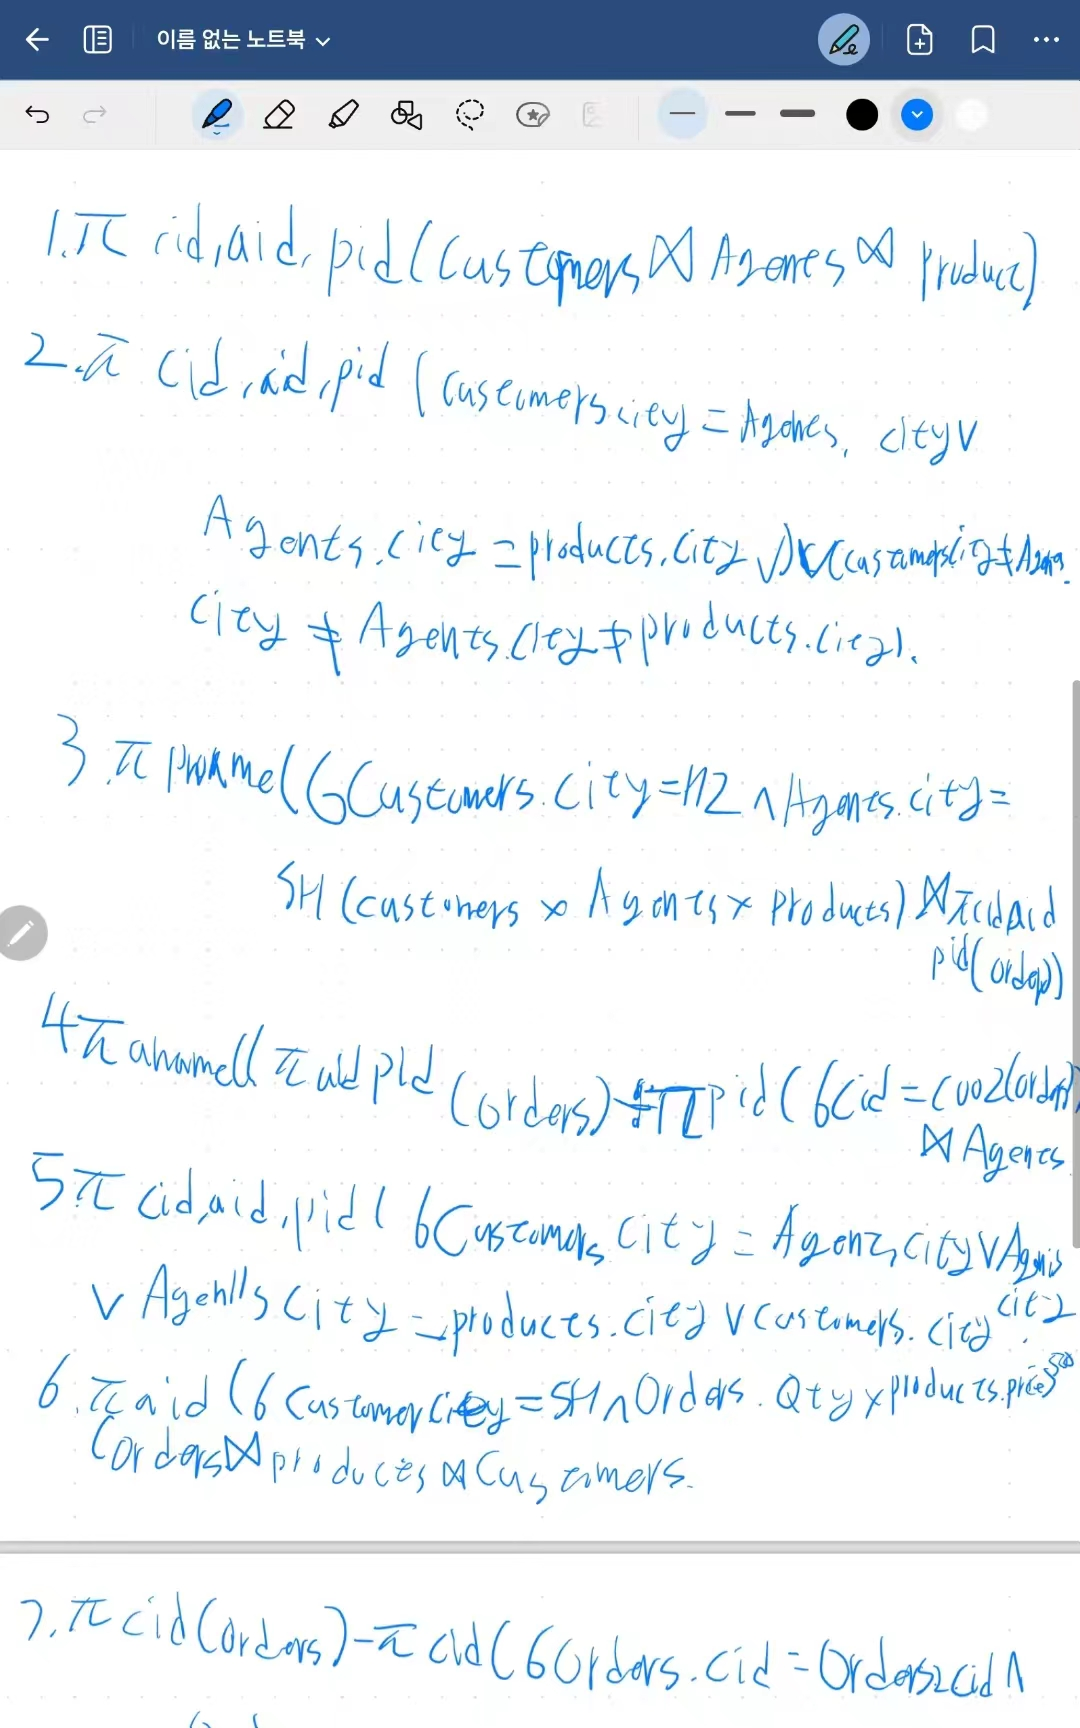 이름 없는 노트북
1.π cid,aid,pid(Customers⋈Agones⋈product)
2.π cid,aid,pid(Customers.city=Agones.city∨
Agents.city=products.city∨)∨(customers.city≠Agens.
city≠Agents.city≠products.city).
3.π pname(σCustomers.city=HZ∧Agents.city=
SH(customers×Agents×products)⋈πcidaid
pid(orders))
4π aname((π aid pid(orders)÷πpid(σcid=c002(orders)
⋈Agents
5π cid,aid,pid(σCustomers.city=Agents.city∨Agents
city
∨Agents city=products.city∨customers.city
6.π aid(σCustomercity=SH∧Orders.Qty×products.price>500
(orders⋈products⋈Customers.
7.π cid(orders)-π cid(σorders.cid=orders2cid∧